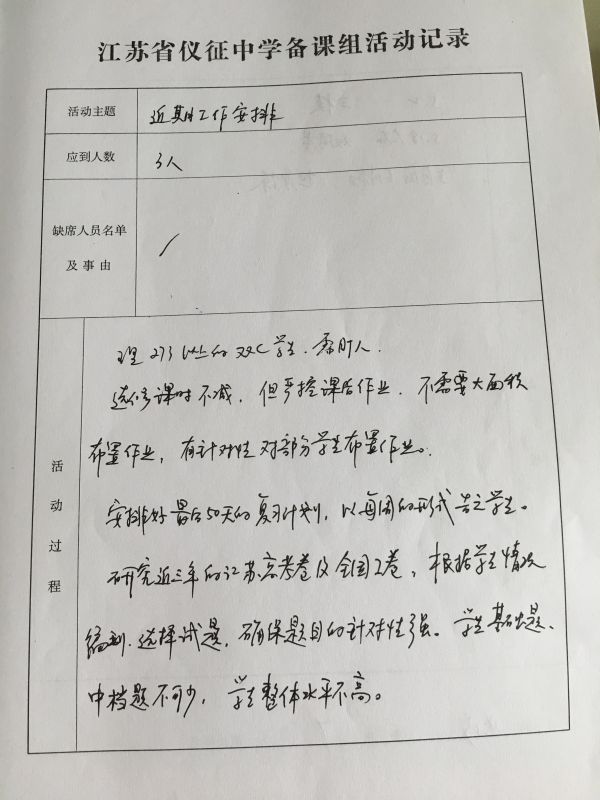 江苏省仪征中学备课组活动记录
活动主题
近期工作安排
应到人数
3人
缺席人员名单
及事由
/
活动过程
理273以上的双C学生.
选修课时不减，但严控课后作业，不需要大面积
布置作业，有针对性对部分学生布置作业。
安排好最后50天的复习计划，以每周的形式告之学生。
研究近三年的江苏高考卷及全国I卷，根据学生情况
编制.选择试题，确保题目的针对性强。学生基础题、
中档题不可少，学生整体水平不高。